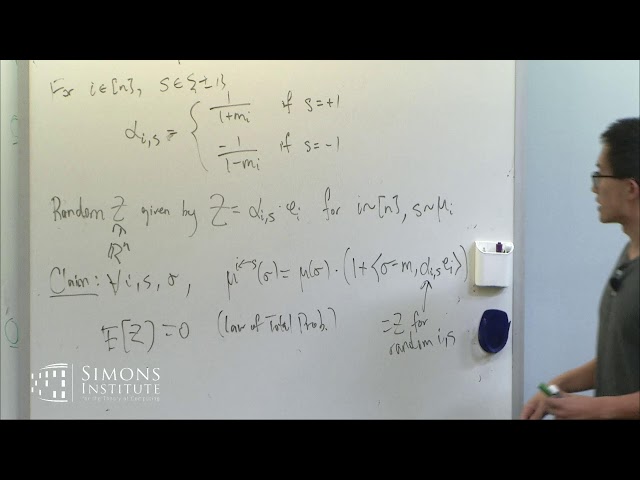 For i∈[n], s∈{±1}
α_{i,s} = { 1/(1+m_i) if s=+1
-1/(1-m_i) if s=-1
Random Z given by Z = α_{i,s}·e_i for i~[n], s~μ_i
ℝⁿ
Claim: ∀i,s,σ, μ^{i←s}(σ) = μ(σ)·(1+⟨σ-m, α_{i,s}e_i⟩)
E[Z]=0 (Law of Total Prob.)
=Z for
random i,s
SIMONS
INSTITUTE
for the Theory of Computing